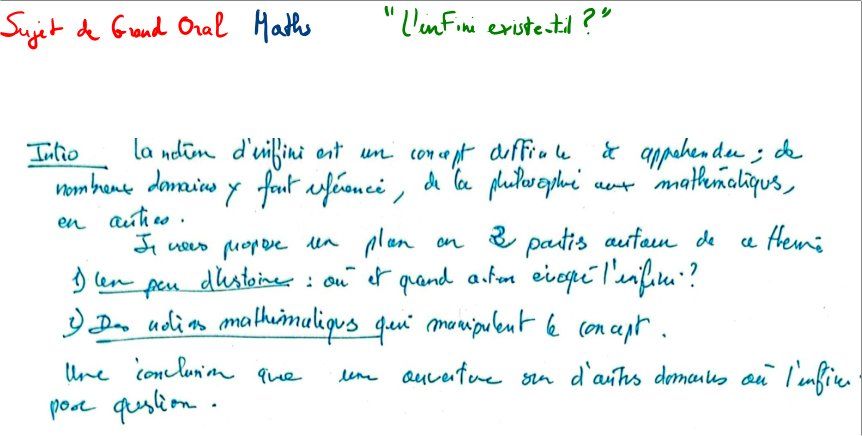 Sujet de Grand Oral Maths "L'infini existe-til ?"
Intro La notion d'infini est un concept difficile à appréhender ; de
nombreux domaines y font référence, de la philosophie aux mathématiques,
en autres.
Je vous propose un plan en 2 parties autour de ce thème
1) Un peu d'histoire : où et quand a-t-on évoqué l'infini ?
2) Des notions mathématiques qui manipulent le concept.
Une conclusion que une ouverture sur d'autres domaines où l'infini
pose question.